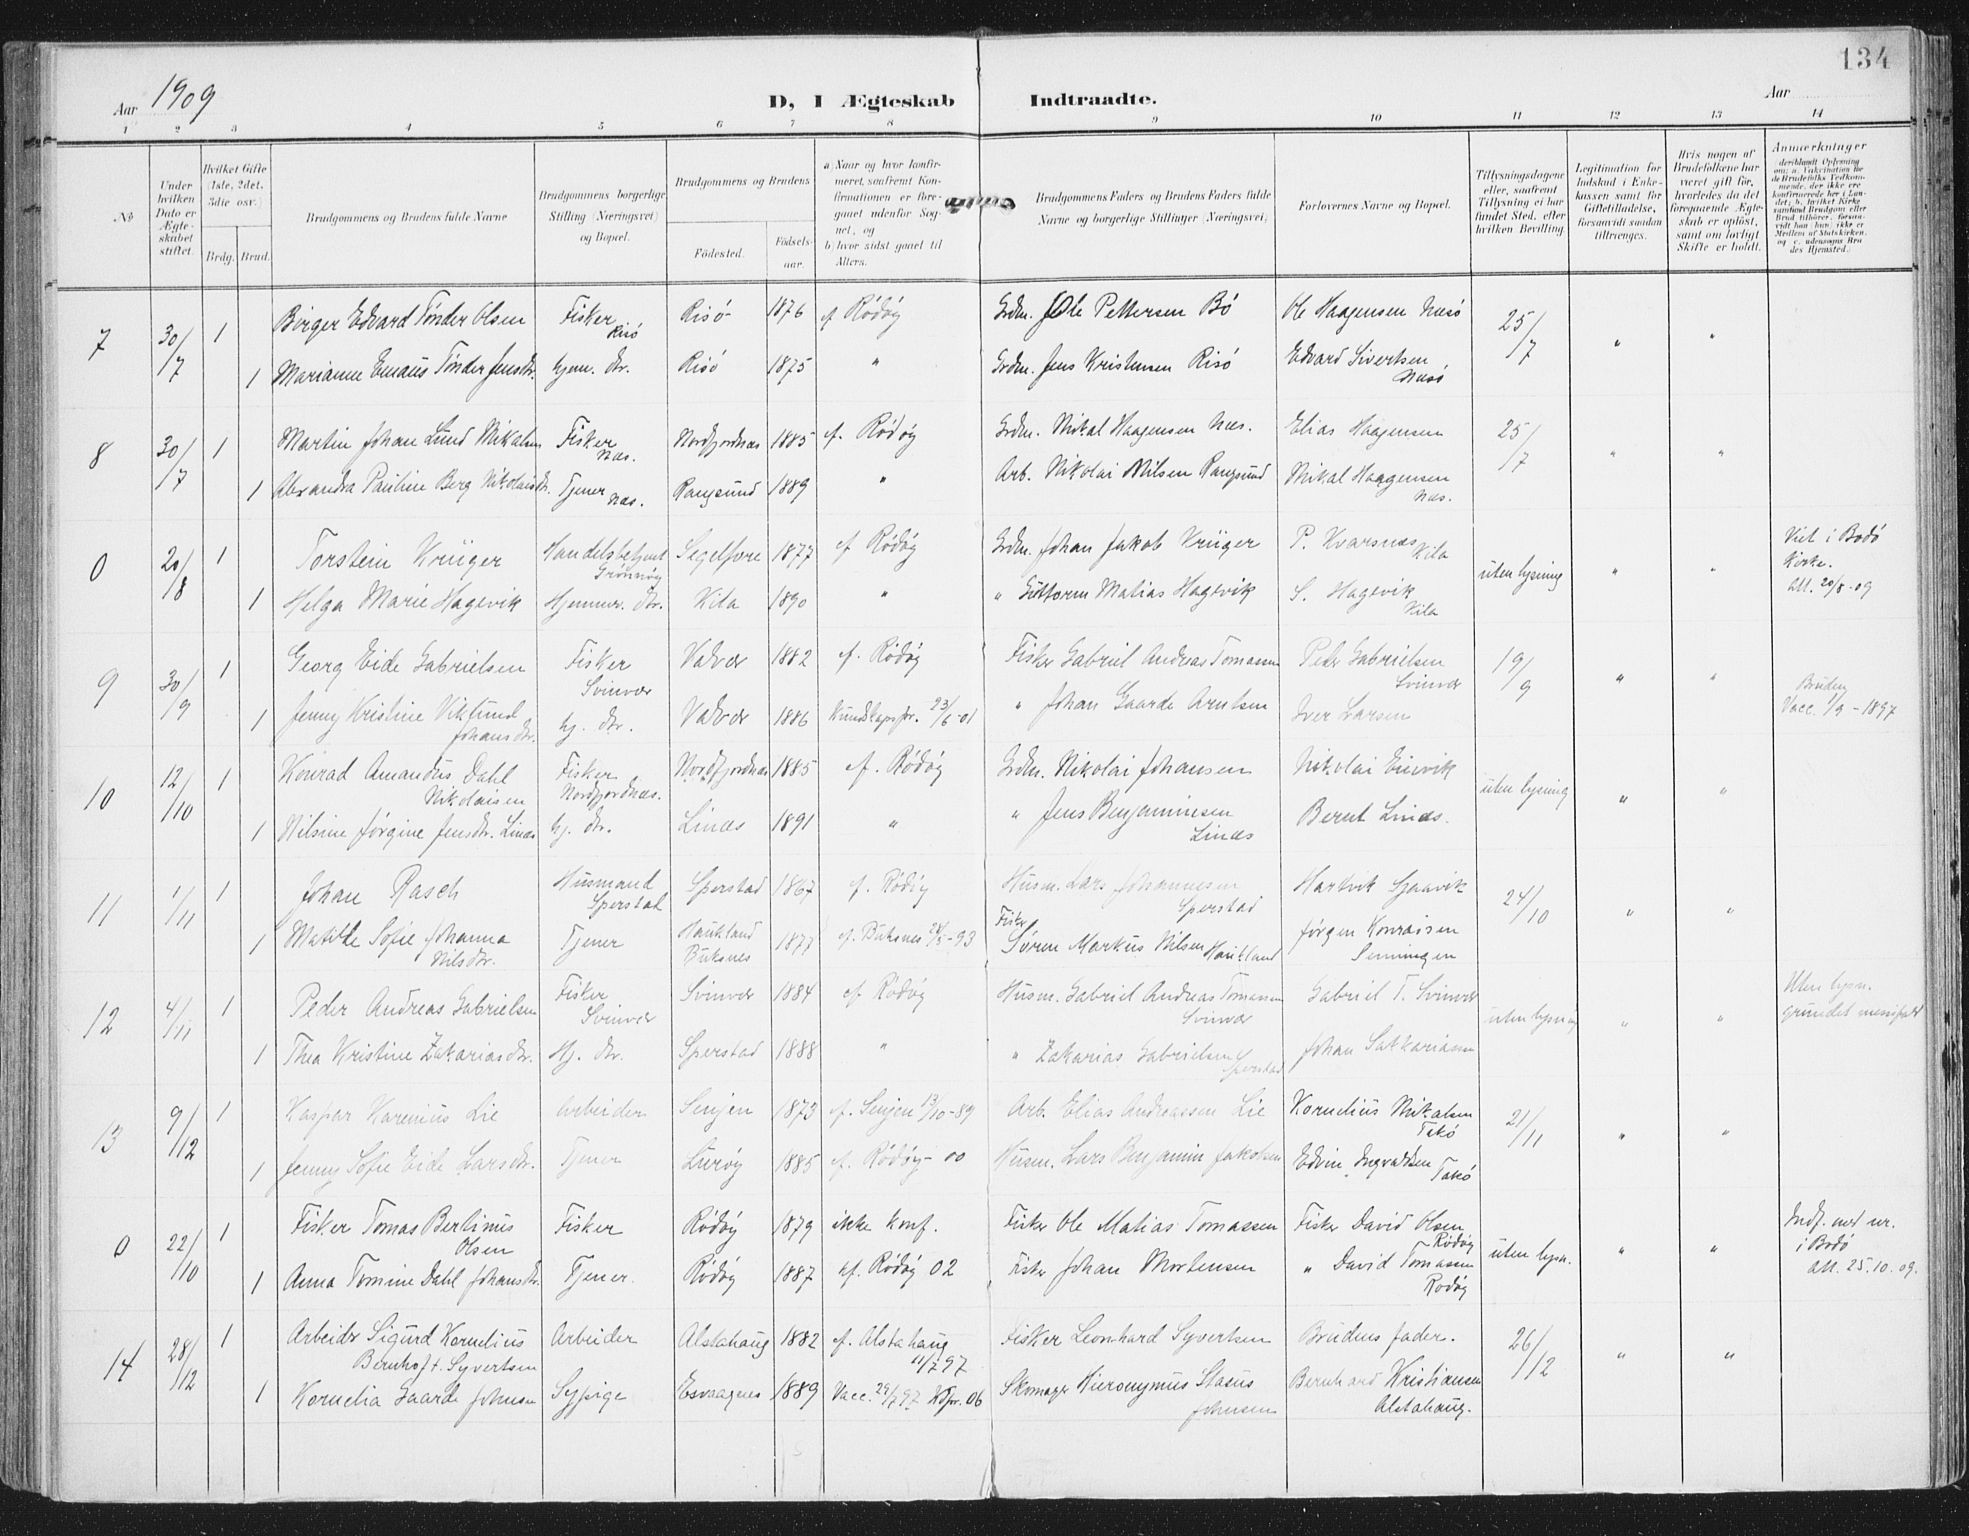 134
Aar 1909
D, I Ægteskab Indtraadte.
Aar
1 2 3 4 5 6 7 8 9 10 11 12 13 14
No
Under hvilken Dato er Ægteskabet stiftet.
Hvilket Gifte (1ste, 2det, 3die osv.)
Brdg. Brud.
Brudgommens og Brudens fulde Navne
Brudgommens borgerlige Stilling (Næringsvei) og Bopæl.
Brudgommens og Brudens
Fødested. Fødselsaar.
a) Naar og hvor konfirmeret, saafremt Konfirmationen er foregaaet udenfor Sognet, og
b) hvor sidst gaaet til Alters.
Brudgommens Faders og Brudens Faders fulde Navne og borgerlige Stillinger (Næringsvei)
Forlovernes Navne og Bopæl.
Tillysningsdagene eller, saafremt Tillysning ei har fundet Sted, efter hvilken Bevilling.
Legitimation for Indskud i Enkekassen samt for Giftetilladelse, forsaavidt saadan tiltrænges.
Hvis nogen af Brudefolkene har været gift før, hvorledes da det foregaaende Ægteskab er opløst, samt om lovligt Skifte er holdt.
Anmærkninger
7 30/7 1 Birger Edvard Tønder Olsen Fisker Risø Risø 1876 cf Rødøy Grdm. Ole Pettersen Bø Ole Haagensen Næsø 25/7 " "
1 Marianne Emaus Tønder Jensdtr. hjem. dtr. Risø 1875 " Grdm. Jens Kristensen Risø Edvard Sivertsen Næsø
8 30/7 1 Martin Johan Lund Mikalsen Fisker Næs. Nordfjordnæs 1885 cf. Rødøy Grdm. Mikal Haagensen Næs. Elias Haagensen 25/7 " "
1 Alexandra Pauline Berg Nikolaisdtr. Tjener Næs. Rangsund 1889 " Arb. Nikolai Nilsen Rangsund Mikal Haagensen Næs.
0 20/8 1 Torstein Krüger Handelsbetjent Grønnøy Segelfore 1877 cf Rødøy Grdm. Johan Jakob Krüger P. Kvarsnæs Kila uten lysing " " Viet i Bodø Kirke. Att. 20/8-09
1 Helga Marie Hagevik Hjemmev. dtr. Kila 1890 " " Guttorm Matias Hagevik S. Hagevik Kila
9 30/9 1 Georg Eide Gabrielsen Fisker Svinvær Valvær 1882 cf. Rødøy Fisker Gabriel Andreas Tomassen Peder Gabrielsen Svinvær 19/9 " "
1 Jenny Kristine Viklund Johansdtr. hj. dtr. Valvær 1886 Kundskapspr. 23/6-01 " Johan Gaarde Arntsen Iver Larsen Bruden Vacc. 1/9-1897
10 12/10 1 Konrad Amandus Dahl Nikolaisen Fisker Nordfjordnæs. Nordfjordnæs 1885 cf. Rødøy Grdm. Nikolai Johansen Nikolai Einvik uten lysning " "
1 Nilsine Jørgine Jensdtr. Linæs hj. dtr. Linæs 1891 " " Jens Benjaminsen Linæs Bernt Linæs.
11 1/11 1 Johan Rasch Husmand Sperstad Sperstad 1867 cf. Rødøy Husm. Lars Johannesen Sperstad Hartvik Sjaavik 24/10 " "
1 Matilde Sofie Johanna Nilsdtr. Tjener Haukland Buksnes 1877 cf. Buksnes 28/5-93 Fisker Søren Markus Nilsen Haukland Jørgen Konradsen Selningen
12 4/11 1 Peder Andreas Gabrielsen Fisker Svinvær Svinvær 1884 cf Rødøy Husm. Gabriel Andreas Tomassen Svinvær Gabriel T. Svinvær uten lysning " " Uten lysn. grundet messefald
1 Thea Kristine Zakariasdtr. Hj. dtr. Sperstad 1888 " " Zakarias Gabrielsen Sperstad Johan Sakkariassen
13 9/12 1 Kaspar Karenius Lie Arbeider Senjen 1873 cf. Senjen 13/10-89 Arb. Elias Andreassen Lie Kornelius Mikalsen Takø 21/11 " "
1 Jenny Sofie Eide Larsdtr. Tjener Lurøy 1885 cf. Rødøy-00 Husm. Lars Benjamin Jakobsen Edvin Ingvaldsen Takø
0 22/10 1 Fisker Tomas Bertinus Olsen Fisker Rødøy 1879 ikke konf. Fisker Ole Matias Tomassen Fisker David Olsen Rødøy uten lysn. " " Indf. med nr. i Bodø Att. 25.10.09.
1 Anna Tomine Dahl Johansdtr. Tjener. Rødøy 1887 cf. Rødøy 02 Fisker Johan Mortensen " David Tomassen Rødøy
14 28/12 1 Arbeider Sigurd Kornelius Bernhoft Syvertsen Arbeider Alstahaug 1882 cf. Alstahaug 11/7 97 Fisker Leonhard Syvertsen Brudens fader. 26/12 " "
1 Kornelia Gaarde Johnsen Sypige Esvaagnes 1889 Vacc. 29/7 97 Kdspr. 06 Skomager Hieronymus Stasus Johnsen Bernhard Kristiansen Alstahaug.